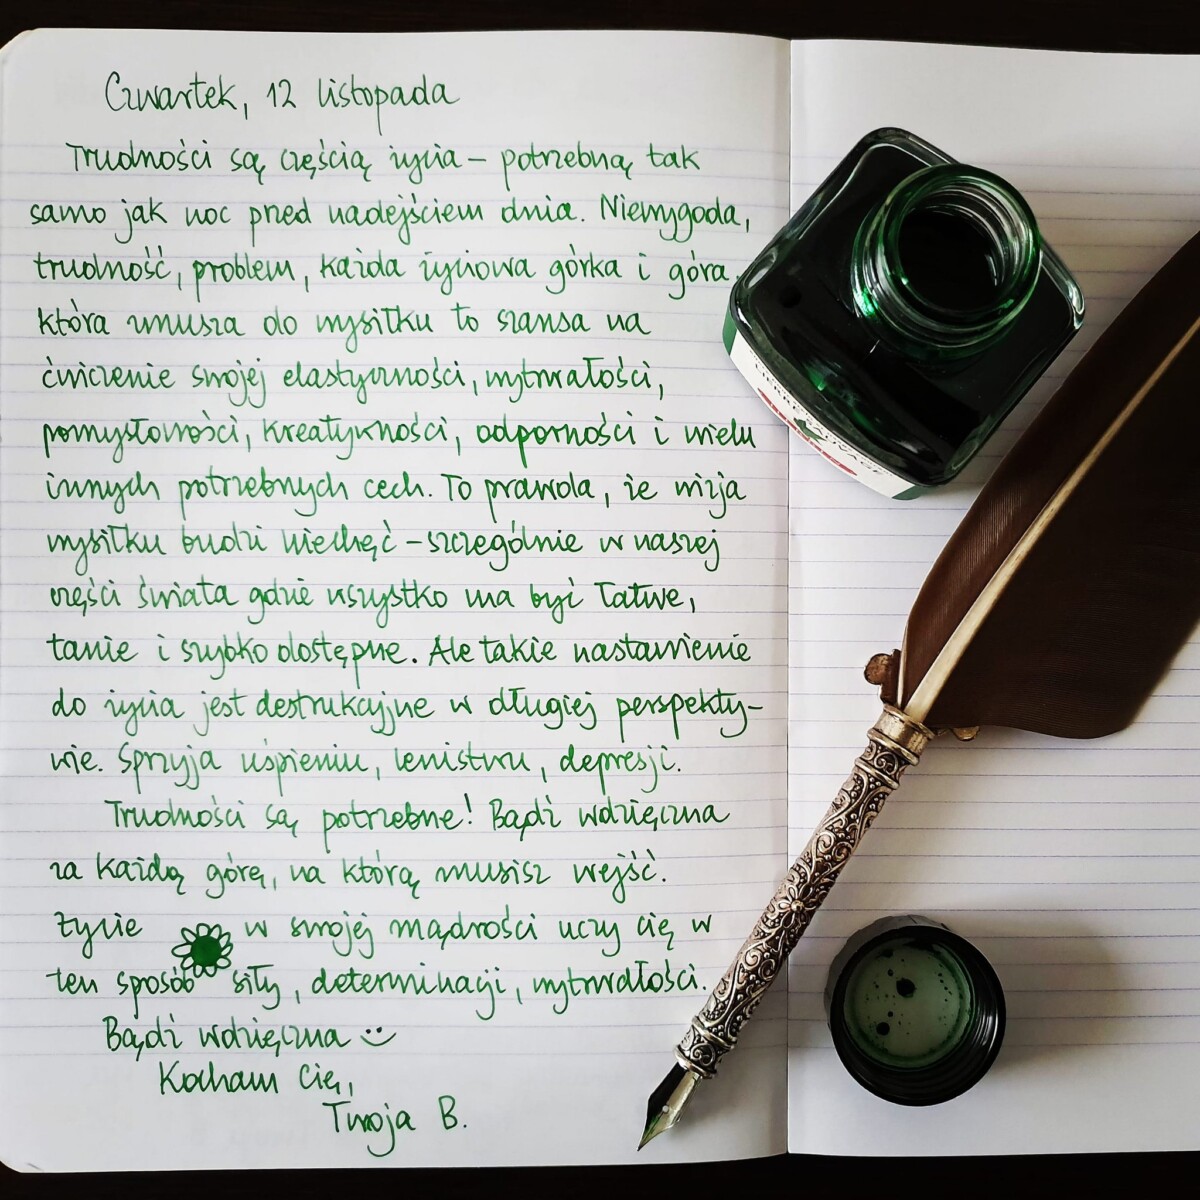 Czwartek, 12 listopada
Trudności są częścią życia – potrzebną tak
samo jak noc przed nadejściem dnia. Niewygoda,
trudność, problem, każda życiowa górka i góra,
która zmusza do wysiłku to szansa na
ćwiczenie swojej elastyczności, wytrwałości,
pomysłowości, kreatywności, odporności i wielu
innych potrzebnych cech. To prawda, że wizja
wysiłku budzi niechęć – szczególnie w naszej
części świata gdzie wszystko ma być łatwe,
tanie i szybko dostępne. Ale takie nastawienie
do życia jest destrukcyjne w długiej perspekty-
wie. Sprzyja uśpieniu, lenistwu, depresji.
Trudności są potrzebne! Bądź wdzięczna
za każdą górę, na którą musisz wejść.
Życie w swojej mądrości uczy cię w
ten sposób siły, determinacji, wytrwałości.
Bądź wdzięczna :)
Kocham Cię,
Twoja B.